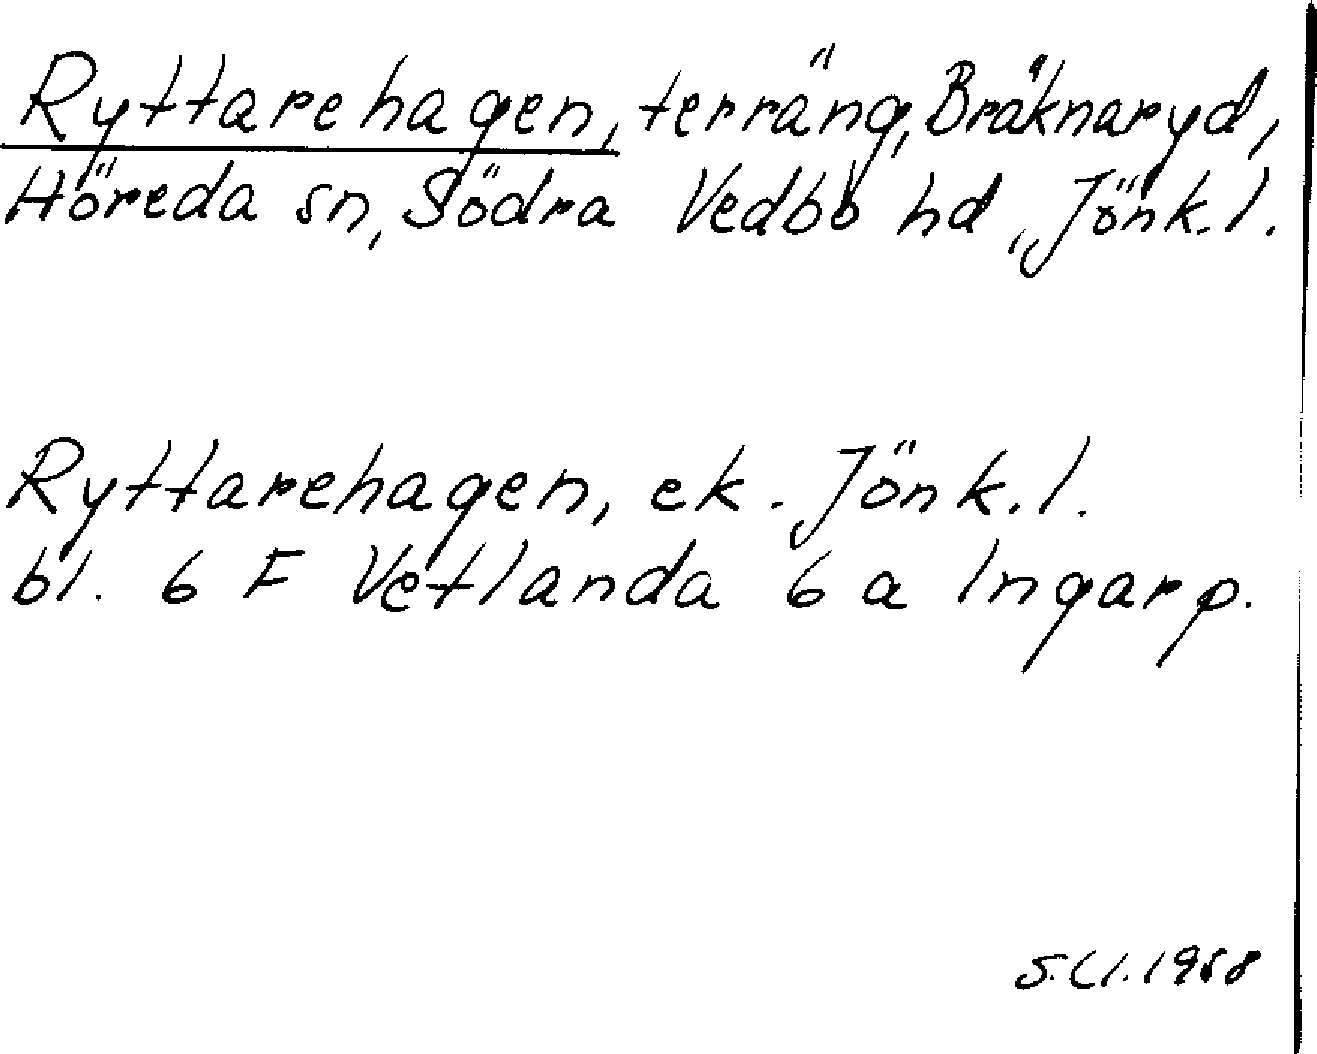 Ryttarehagen, terräng, Bräknaryd,
Höreda sn, Södra Vedbo hd, Jönk.l.
Ryttarehagen, ek. Jönk.l.
bl. 6 F Vetlanda 6 a Ingarp.
1958